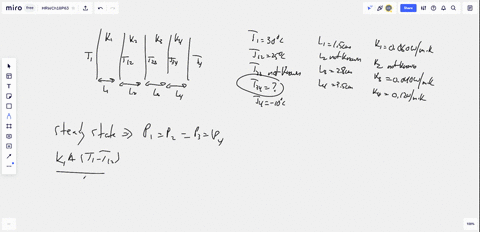 miro
free
HRWCh18P63
Share
K₁ K₂ K₃ K₄
T₁ T₁₂ T₂₃ T₃₄ T₄
L₁ L₂ L₃ L₄
T₁=30°C
T₁₂=25°C
T₂₃ not known
T₃₄=?
T₄=-10°C
L₁=1.5cm
L₂ not known
L₃=2.8cm
L₄=3.5cm
K₁=0.060W/mK
K₂ not known
K₃=0.040W/mK
K₄=0.12W/mK
steady state ⇒ P₁=P₂=P₃=P₄
K₁A(T₁-T₁₂)
100%